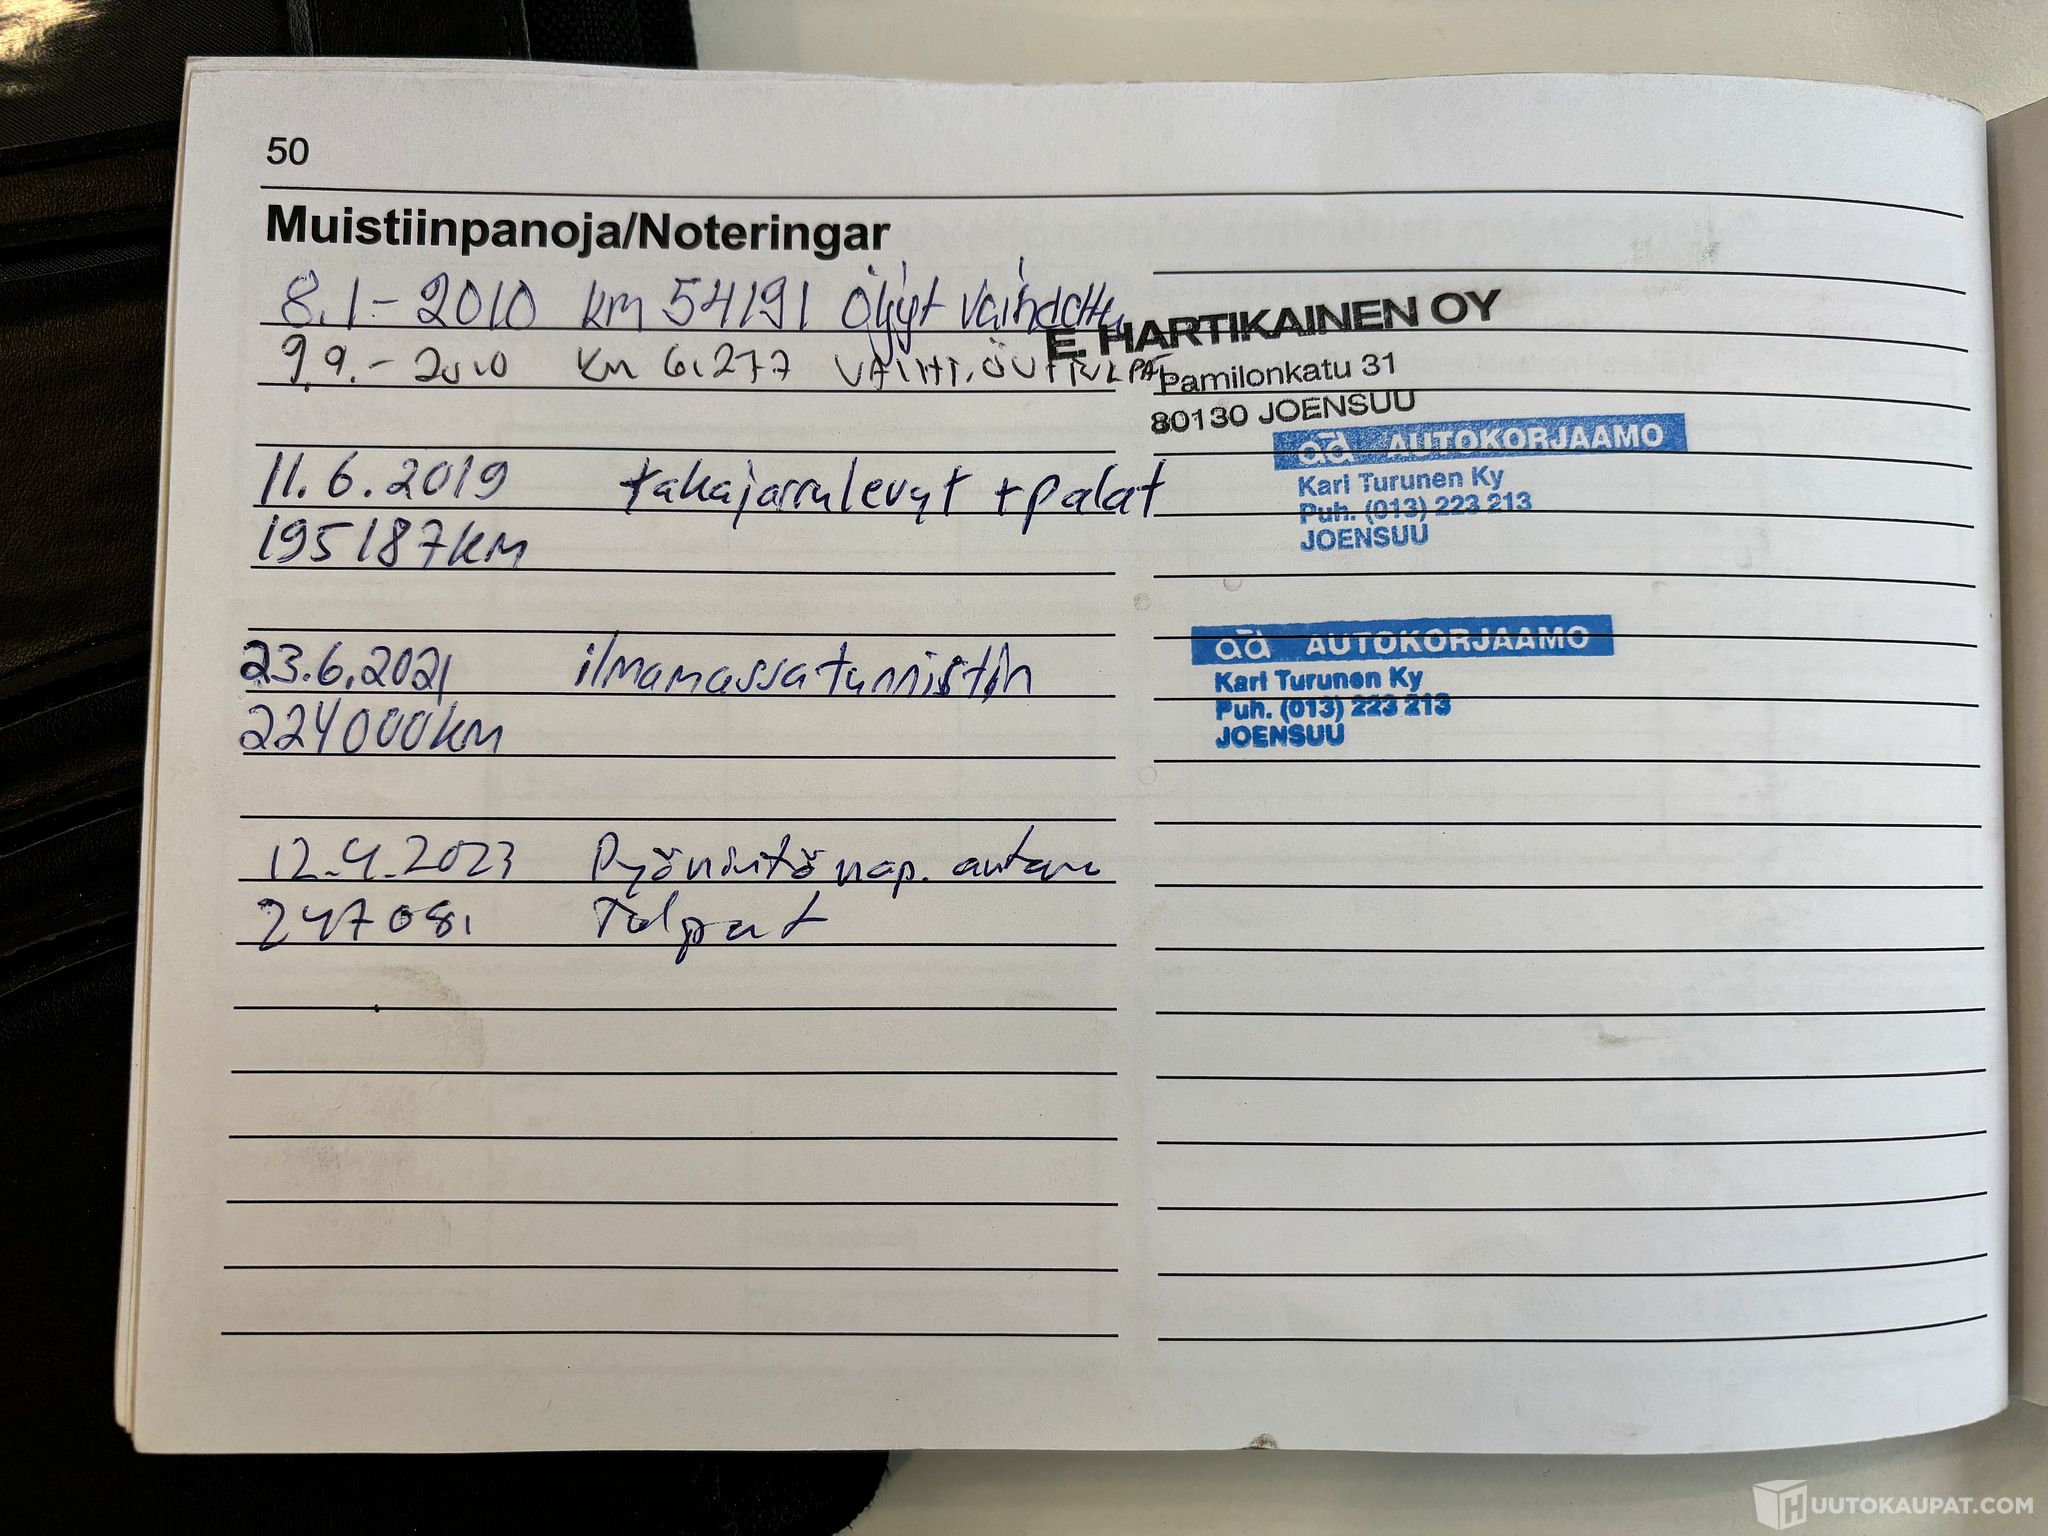 50
Muistiinpanoja/Noteringar
8.1-2010 km 54191 Öljyt vaihdettu
E. HARTIKAINEN OY
9.9.-2010 km 61277
Pamilonkatu 31
80130 JOENSUU
AUTOKORJAAMO
11.6.2019 takajarrulevyt + palat
Kari Turunen Ky
Puh. (013) 223 213
195187km
JOENSUU
ad AUTOKORJAAMO
23.6.2021 ilmamassatunnistin
Kari Turunen Ky
Puh. (013) 223 213
224000km
JOENSUU
12.4.2023 Pyörintönap.
247081
HUUTOKAUPAT.COM